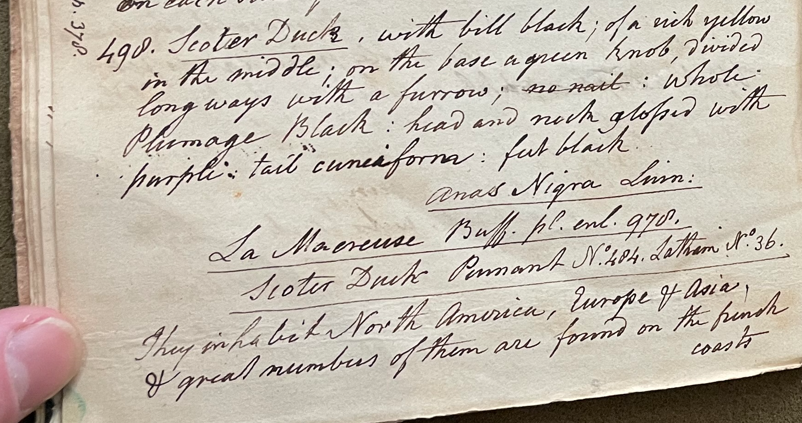 on each
h. 378.
498. Scoter Duck, with bill black; of a rich yellow
in the middle; on the base a green knob, divided
long ways with a furrow; no nail: whole
Plumage Black: head and neck glossed with
purple: tail cuneiform: feet black
Anas Nigra Linn:
La Macreuse Buff. pl. enl. 978.
Scoter Duck Pennant No. 484. Latham No. 36.
They inhabit North America, Europe & Asia,
& great numbers of them are found on the french
coasts